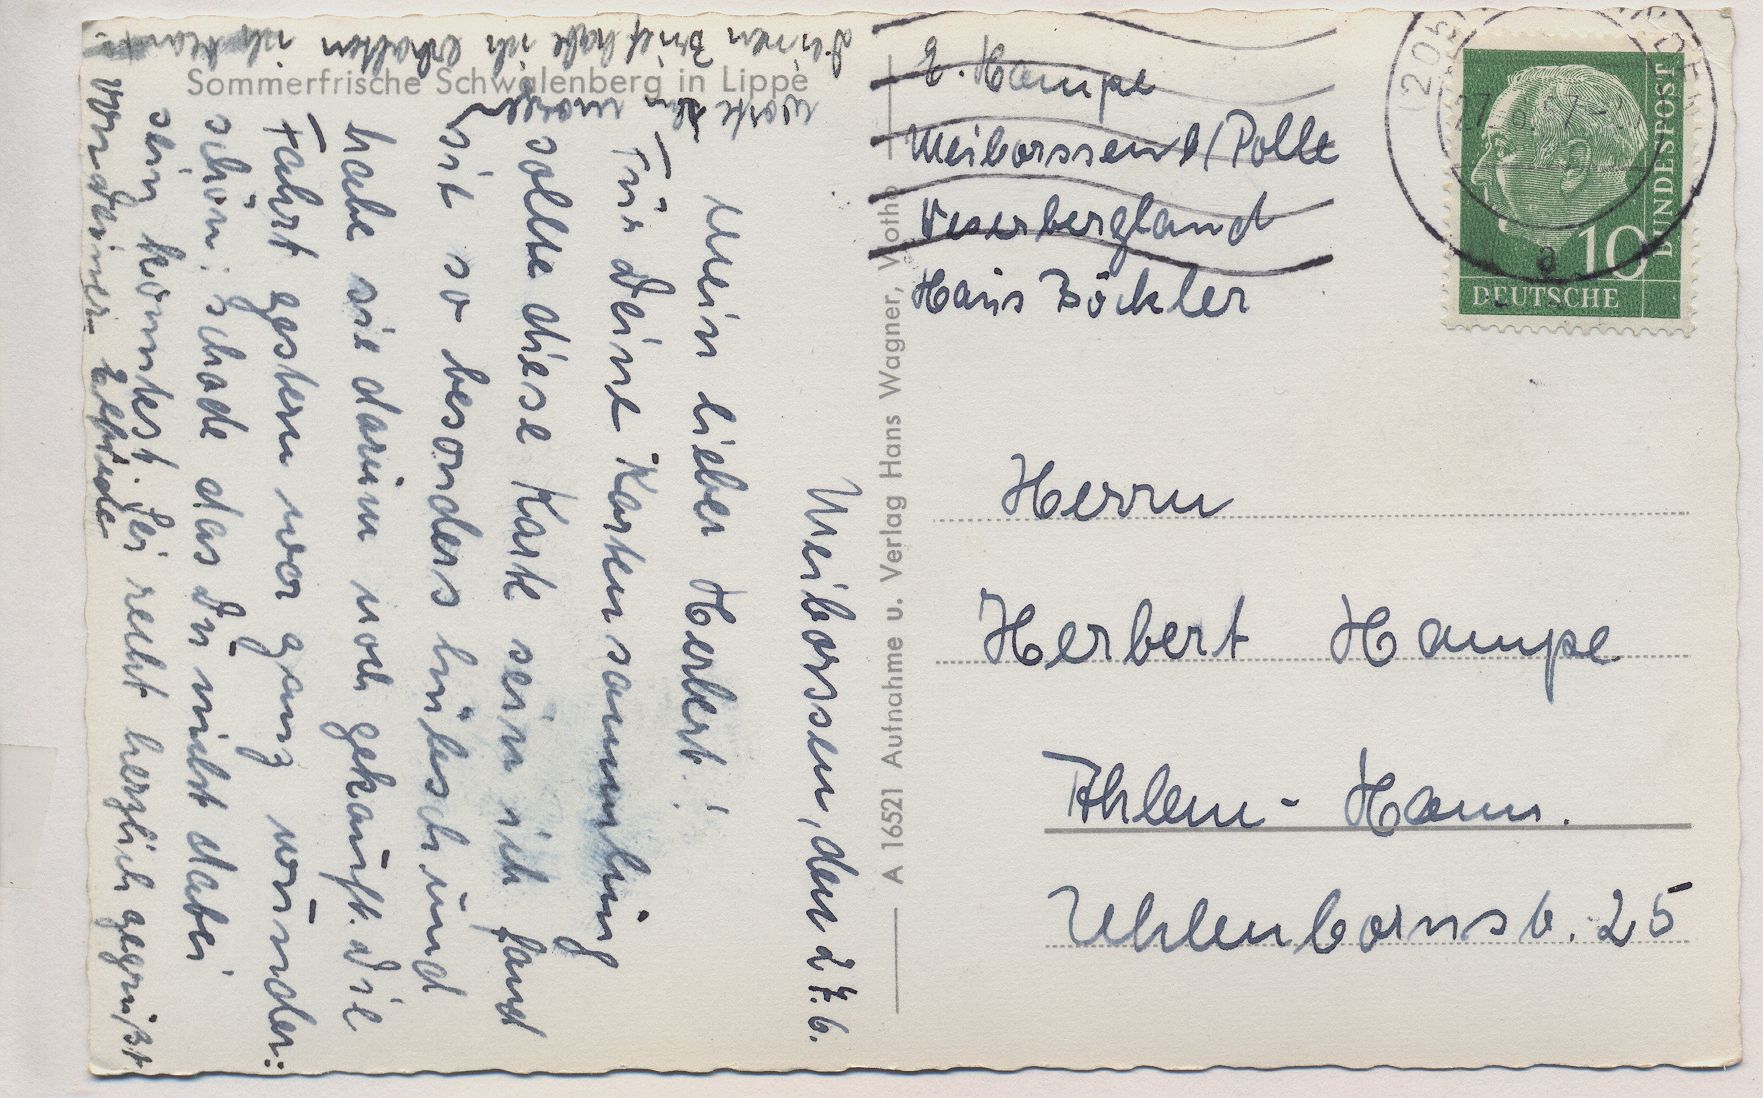 Sommerfrische Schwalenberg in Lippe
Meiborssen, den 27.6.
Mein lieber Herbert!
Für deine Kartensammlung
sollte diese Karte sein ich fand
sie so besonders hübsch und
habe sie darum noch gekauft. Die
Fahrt gestern war ganz wunder:
schön; schade das Du nicht dabei
sein konntest. Sei recht herzlich gegrüßt
von deiner
Deinen Brief habe ich erhalten ich
morgen
A 16521 Aufnahme u. Verlag Hans Wagner, Vlotho
E. Hampe
Meiborssen b/Polle
Weserbergland
Hans Böckler
DEUTSCHE
BUNDESPOST
10
a
Herrn
Herbert Hampe
Ahlem-Hann.
Uhlenbornsb. 25